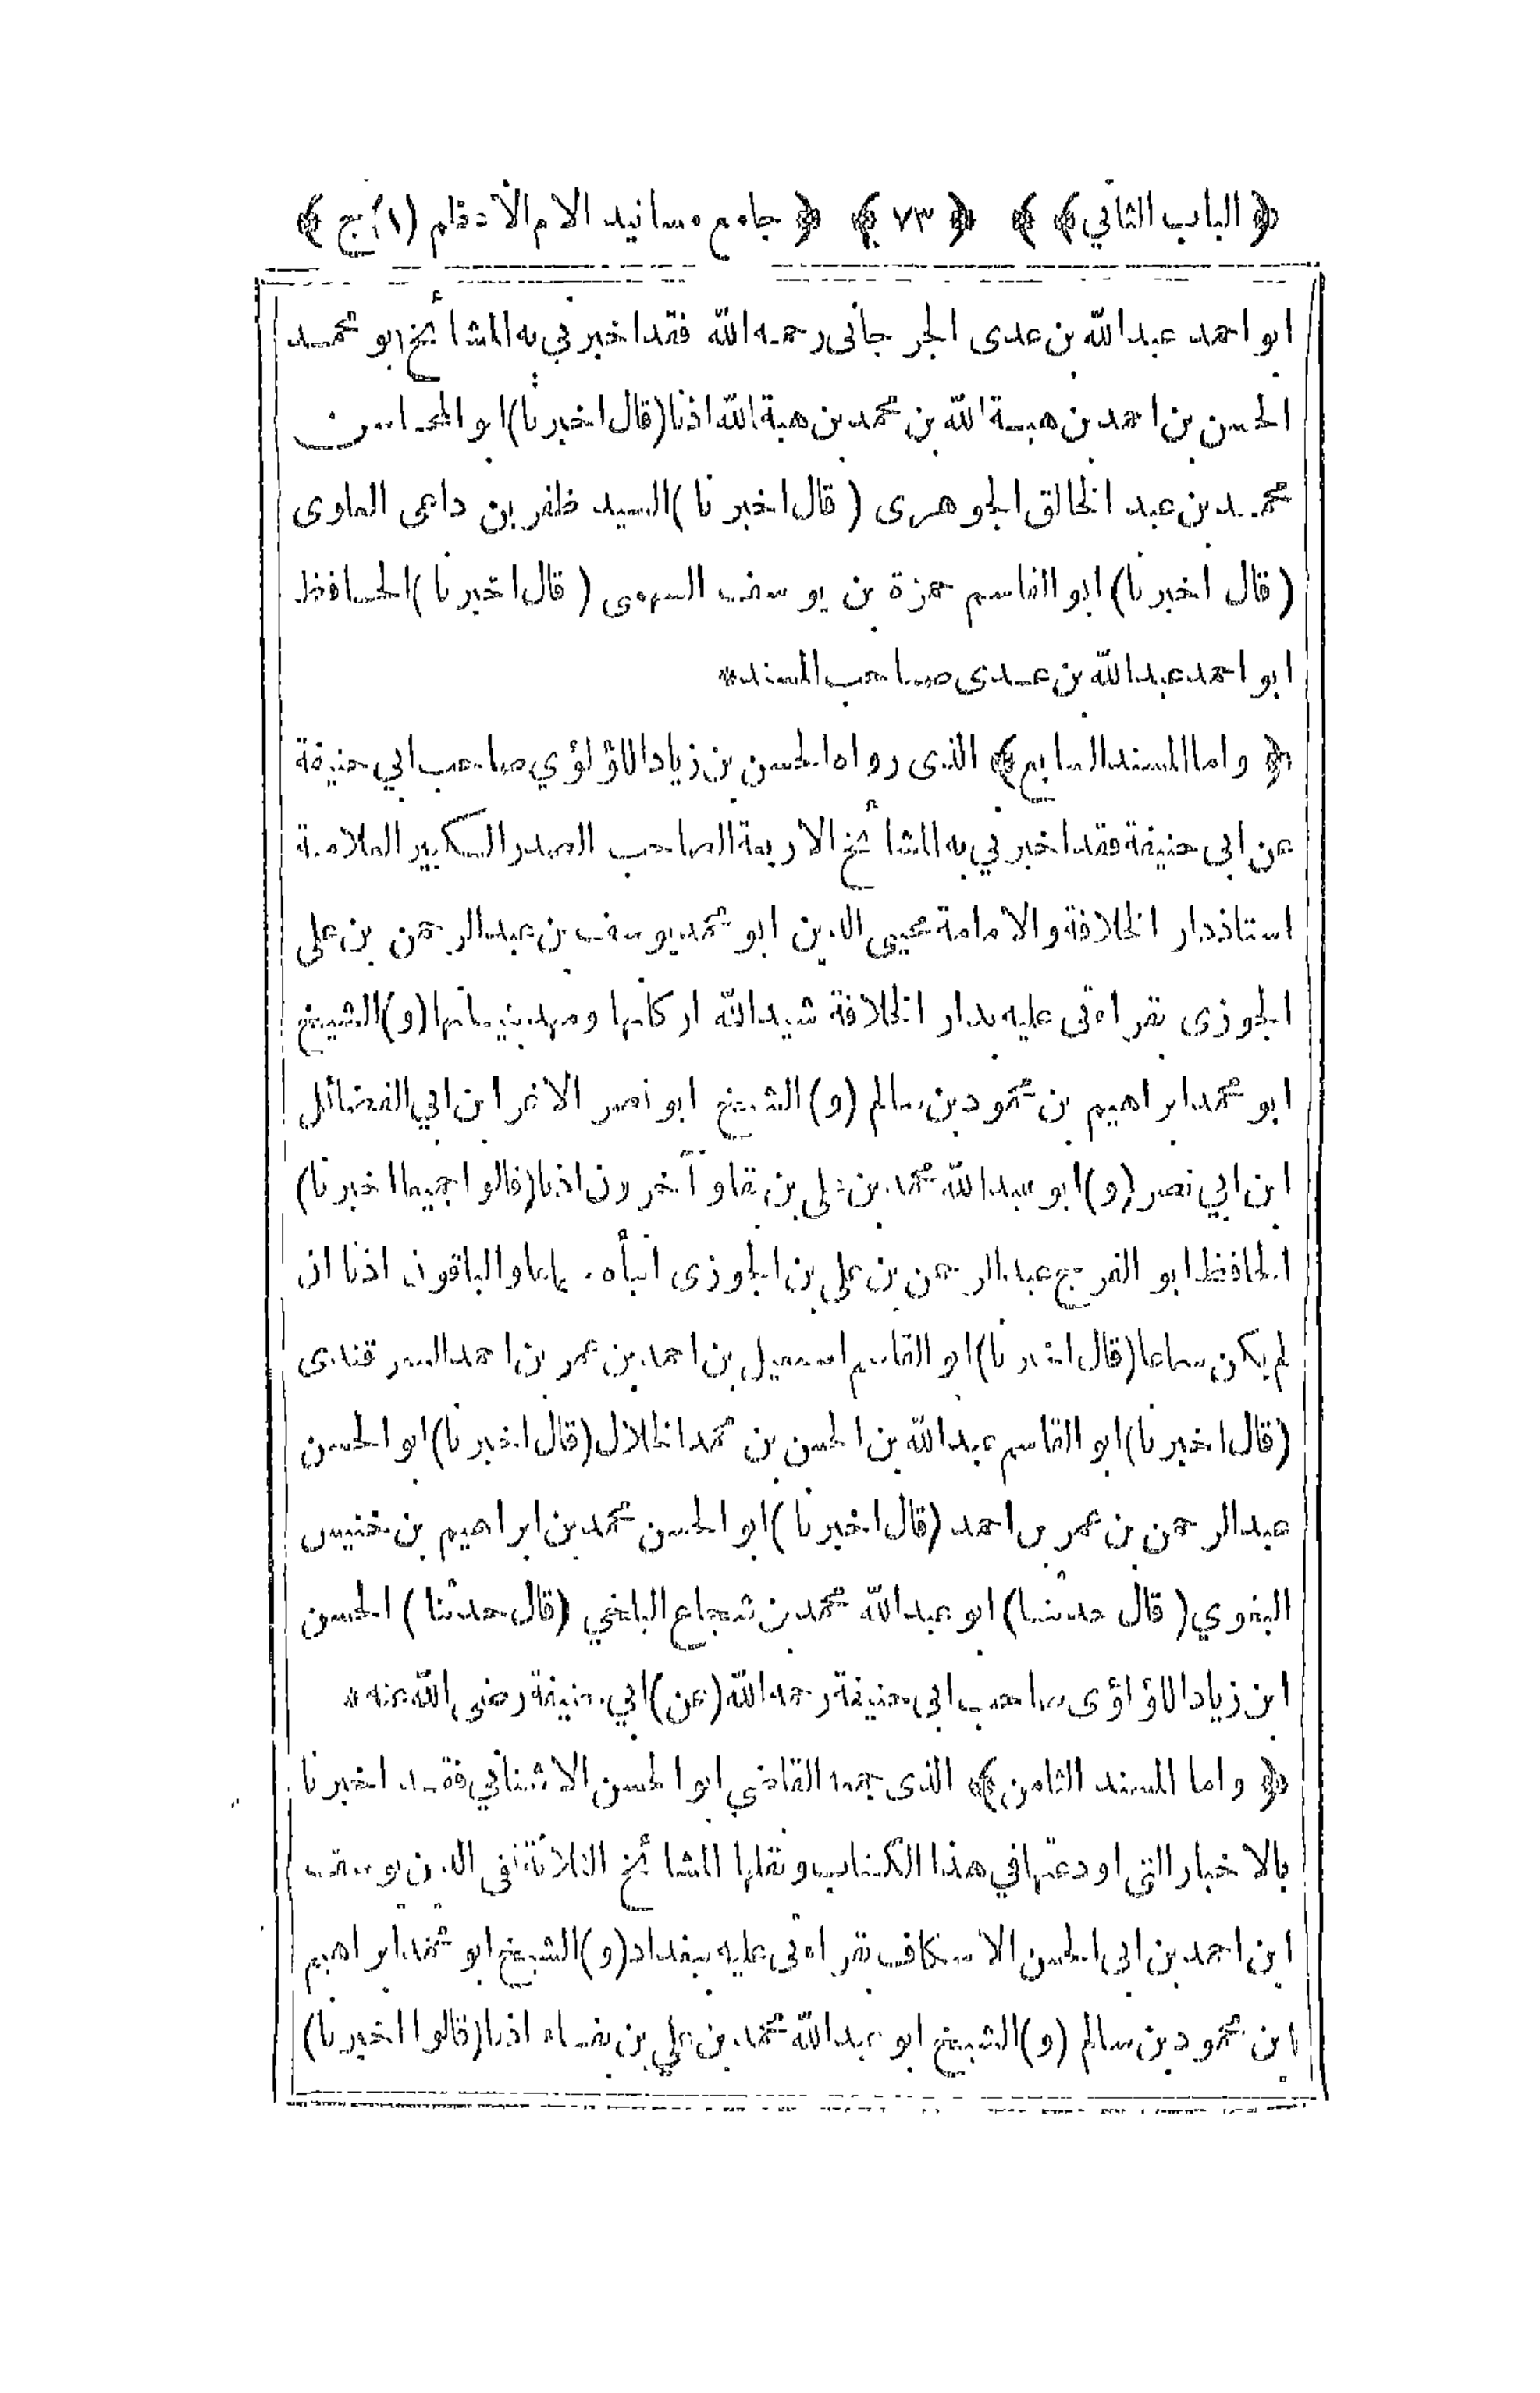 ﴿ الباب الثاني ﴾ ﴾ ﴿ ٧٣ ﴾ ﴿ جامع مسانيد الامام الأعظم (١) ج ﴾
ابو احمد عبدالله بن عدى الجرجانى رحمه الله فقد اخبرني به المشائخ ابو محمد
الحسن بن احمد بن هبة الله بن محمد بن هبة الله اذنا (قال اخبرنا) ابو المحاسن
محمد بن عبد الخالق الجوهرى (قال اخبرنا) السيد ظفر بن داعى العلوى
(قال اخبرنا) ابو القاسم حمزة بن يوسف السهمى (قال اخبرنا) الحافظ
ابو احمد عبدالله بن عدى صاحب المسند*
﴿ واما المسند السابع ﴾ الذى رواه الحسن بن زياد اللؤلؤي صاحب ابي حنيفة
عن ابى حنيفة فقد اخبرني به المشائخ الاربعة الصاحب الصدر الكبير العلامة
استاذدار الخلافة والامامة محيى الدين ابو محمد يوسف بن عبدالرحمن بن على
الجوزى بقراءتى عليه بدار الخلافة شيد الله اركانها ومهد بنيانها (و) الشيخ
ابو محمد ابراهيم بن محمود بن سالم (و) الشيخ ابو نصر الاغر ابن ابي الفضائل
ابن ابي نصر (و) ابو عبدالله محمد بن على بن بقا وآخرون اذنا (قالوا جميعا اخبرنا)
الحافظ ابو الفرج عبدالرحمن بن علي بن الجوزى انبأه سماعا والباقون اذنا ان
لم يكن سماعا (قال اخبرنا) ابو القاسم اسمعيل بن احمد بن عمر بن احمد السمرقندى
(قال اخبرنا) ابو القاسم عبدالله بن الحسن بن محمد الخلال (قال اخبرنا) ابو الحسن
عبدالرحمن بن عمر بن احمد (قال اخبرنا) ابو الحسن محمد بن ابراهيم بن خنيس
البغوي (قال حدثنا) ابو عبدالله محمد بن شجاع البلخي (قال حدثنا) الحسن
ابن زياد اللؤلؤى صاحب ابى حنيفة رحمه الله (عن) ابي حنيفة رضى الله عنه *
﴿ واما المسند الثامن ﴾ الذى جمعه القاضي ابو الحسن الاشناني فقد اخبرنا
بالاخبار التى اودعتها في هذا الكتاب ونقلها المشائخ الثلاثة تقى الدين يوسف
ابن احمد بن ابى الحسن الاسكاف بقراءتى عليه ببغداد (و) الشيخ ابو محمد ابراهيم
ابن محمود بن سالم (و) الشيخ ابو عبدالله محمد بن علي بن بقاء اذنا (قالوا اخبرنا)